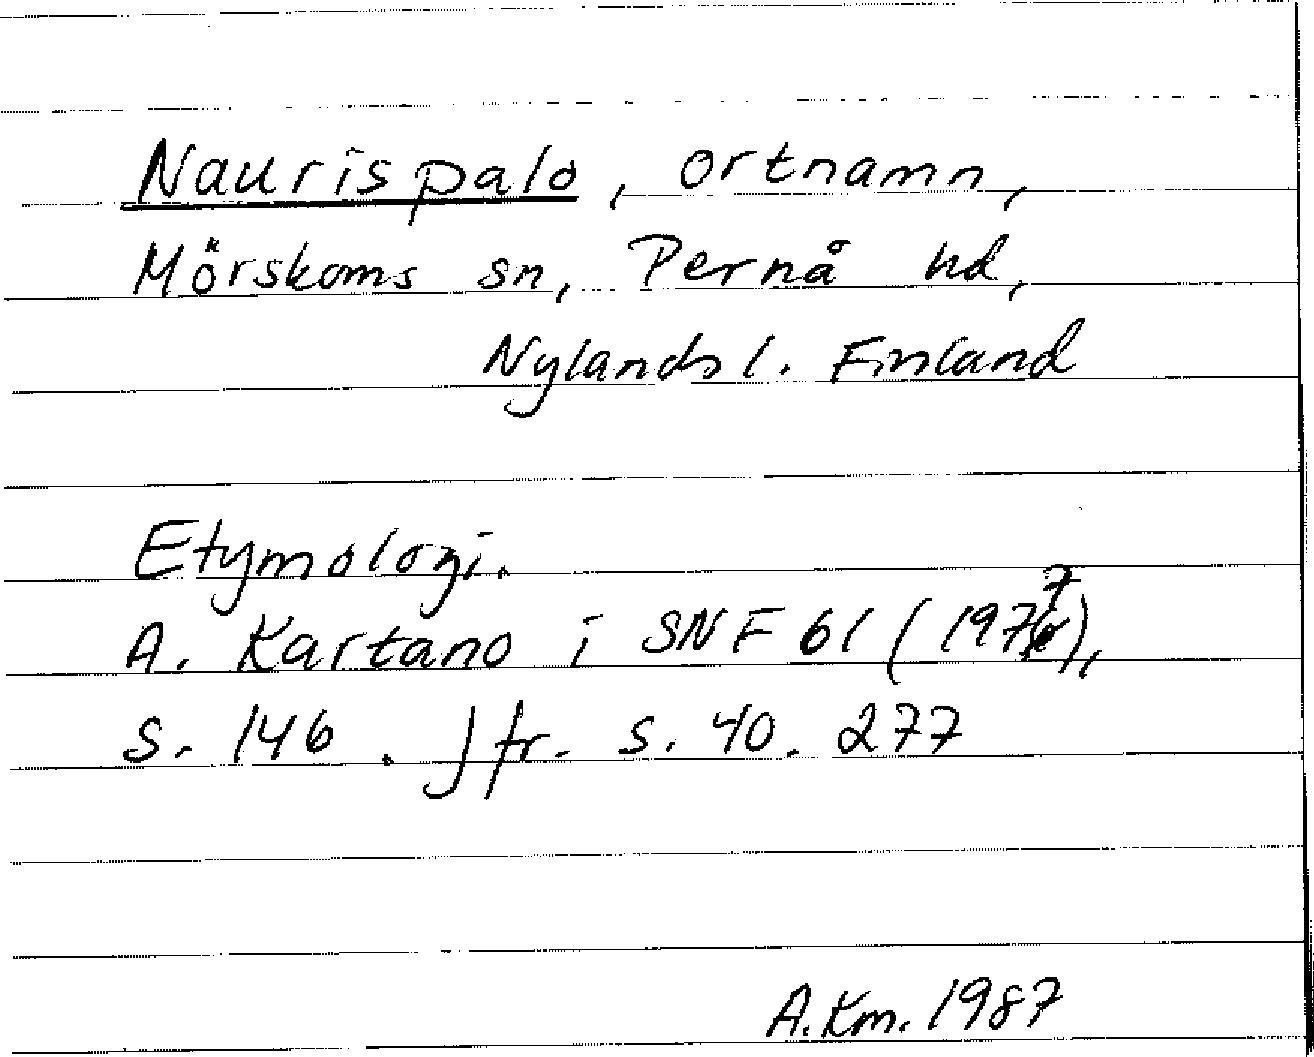 Naurispalo, ortnamn,
Mörskoms sn, Pernå hd,
Nylands l. Finland
Etymologi.
A. Kartano i SNF 61 (1977),
s. 146. Jfr. s. 40. 277
A.Km. 1987